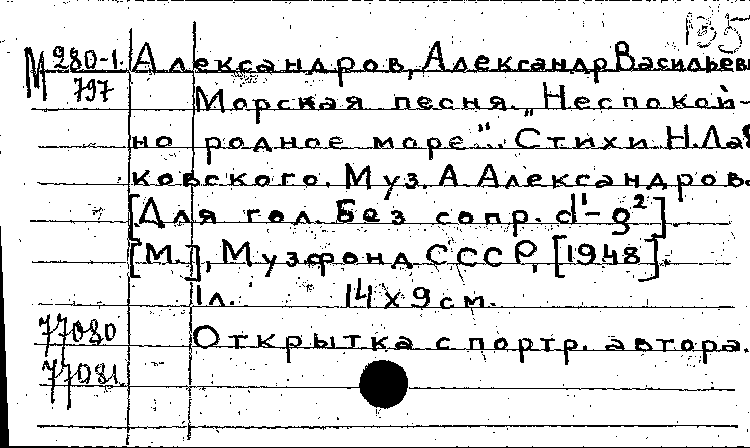 135
М 280-1 Александров, Александр Васильеви
797 Морская песня. „Неспокой-
но родное море“. Стихи Н. Лаб
ковского. Муз. А. Александров.
[Для гол. без сопр. d¹-g²].
[М.], Музфонд СССР, [1948].
1 л. 14 х 9 см.
77080 Открытка с портр. автора.
77081